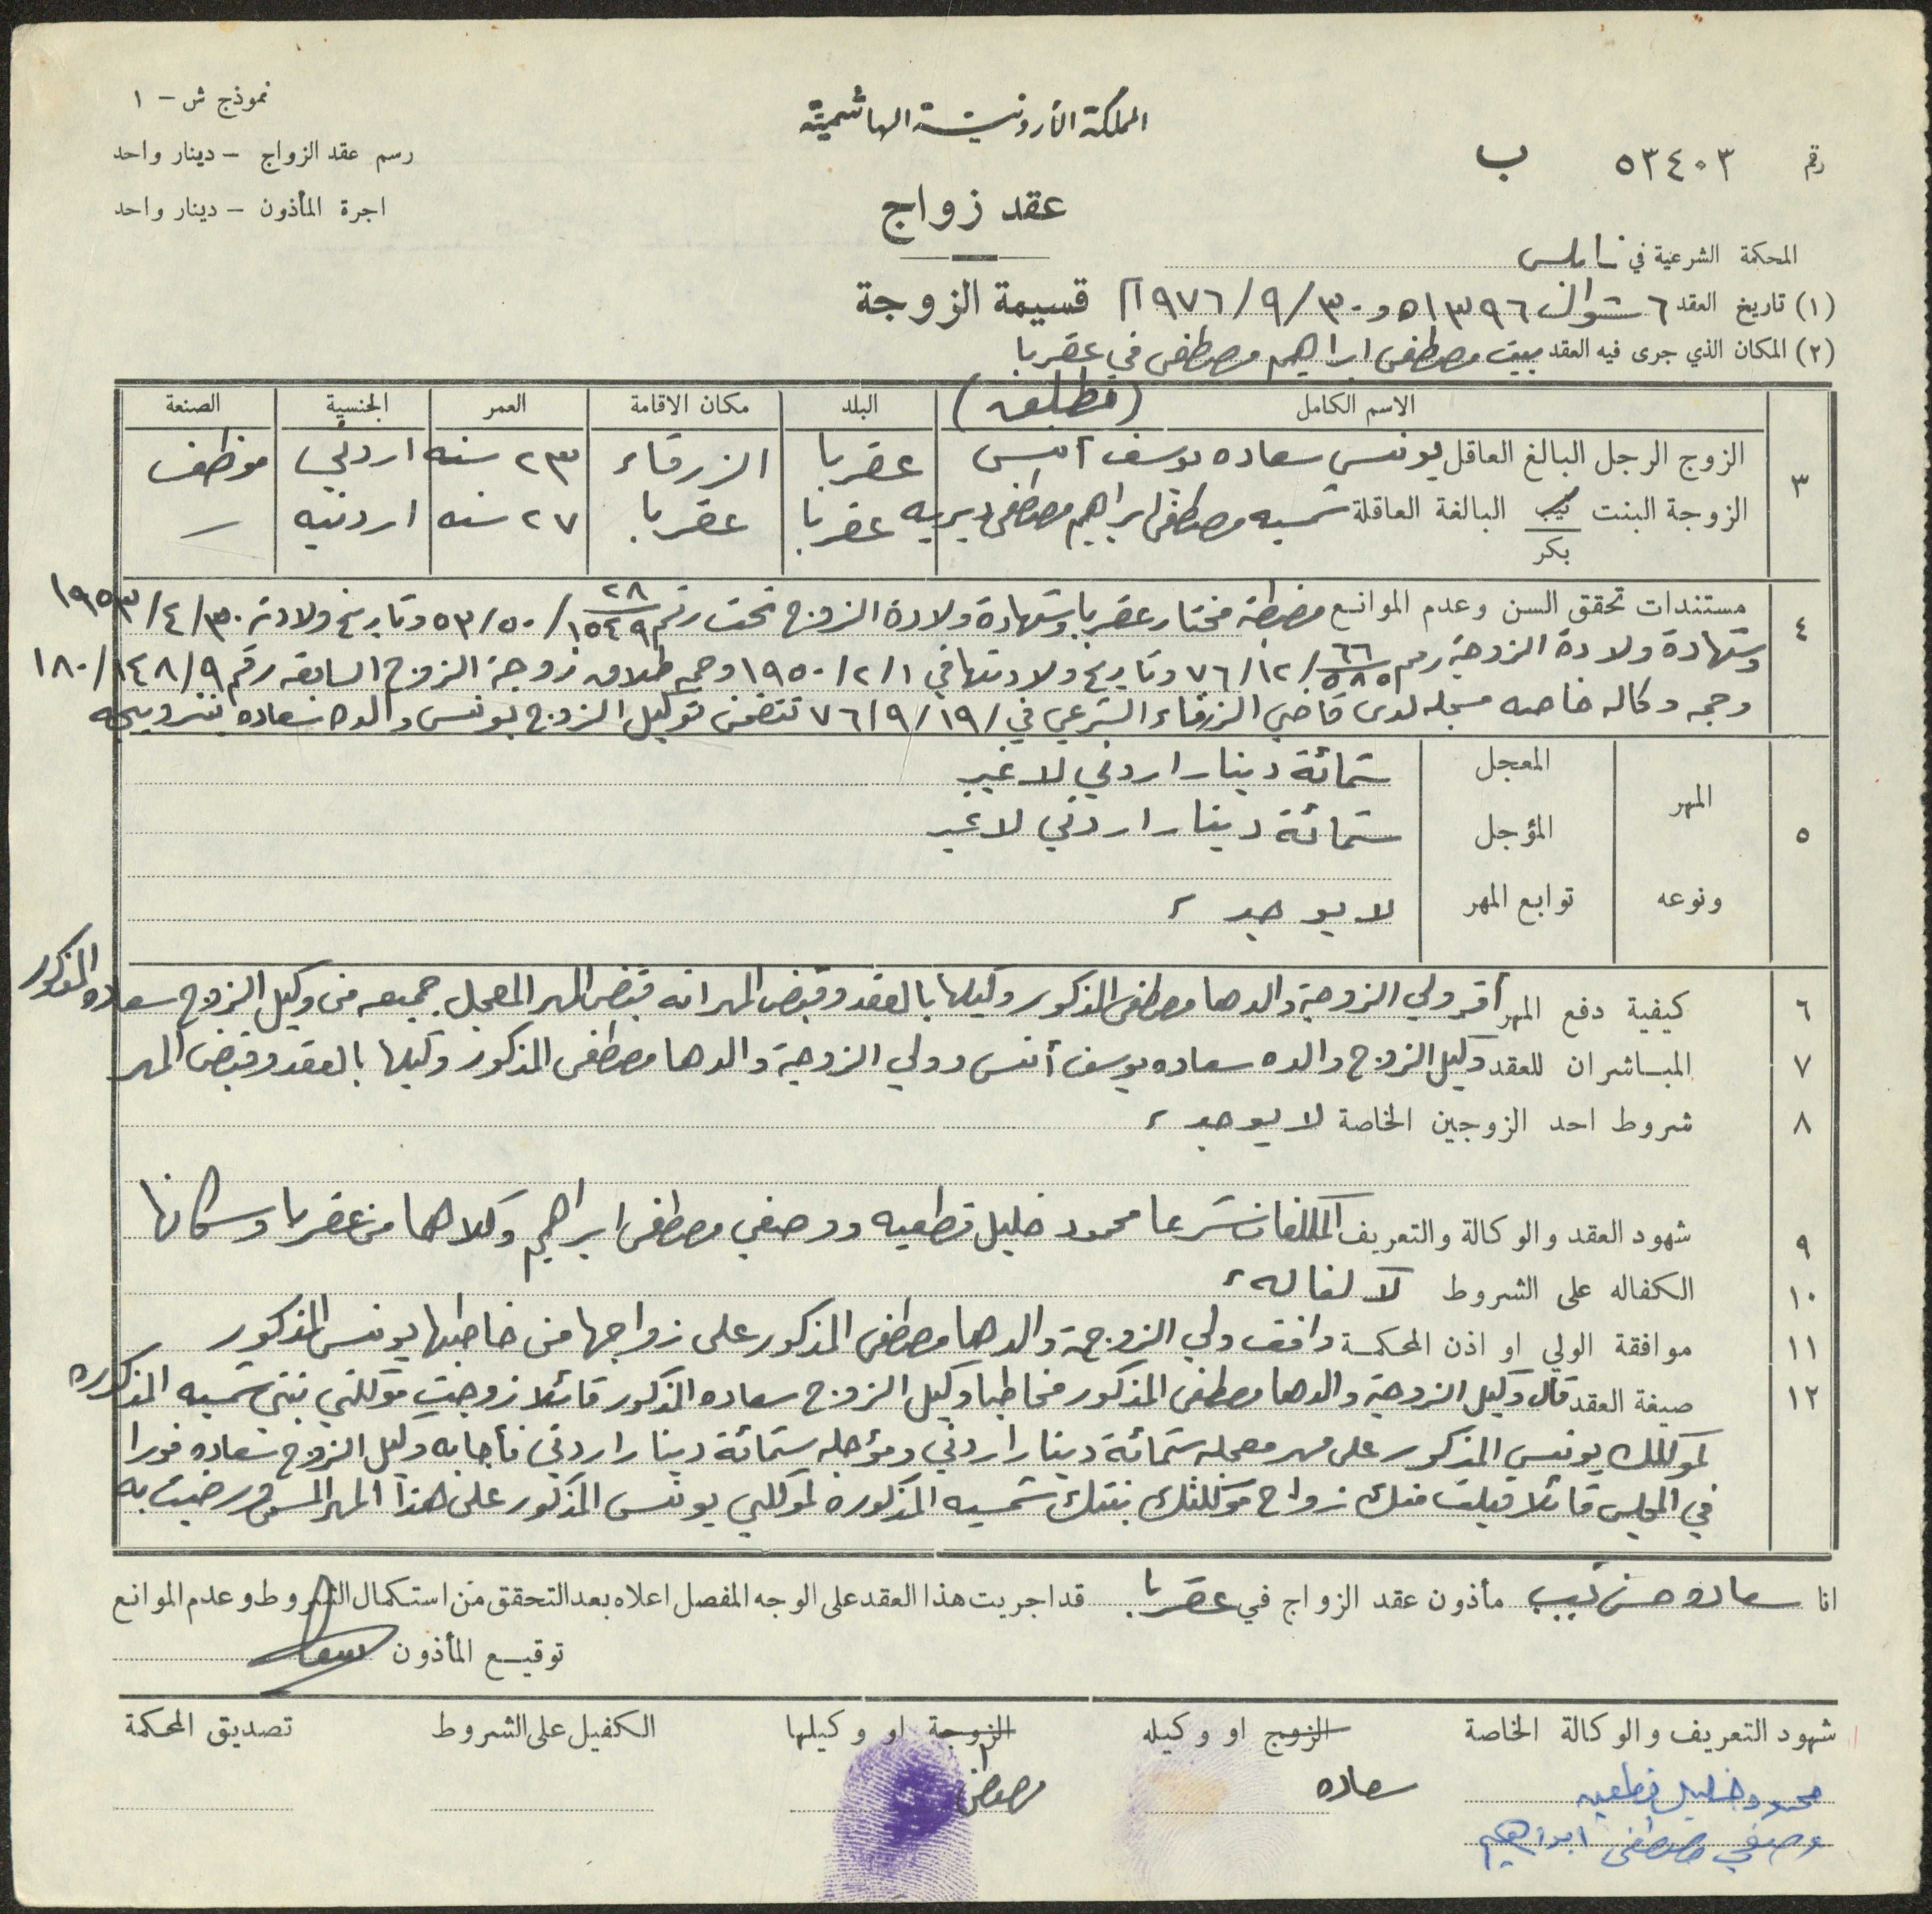 نموذج ش - ١
المملكة الأردنية الهاشمية
رقم ٥٣٤٠٣ ب
رسم عقد الزواج - دينار واحد
اجرة المأذون - دينار واحد
عقد زواج
المحكمة الشرعية في نابلس
(١) تاريخ العقد ٦ شوال ١٣٩٦ه و ٣٠/٩/١٩٧٦م قسيمة الزوجة
(٢) المكان الذي جرى فيه العقد بيت مصطفى ابراهيم مصطفى في عقربا
٣ الاسم الكامل (مطلق) البلد مكان الاقامة العمر الجنسية الصنعة
الزوج الرجل البالغ العاقل يونس سعاده يوسف أنيس عقربا الزرقاء ٢٣ سنه اردني موظف
الزوجة البنت ثيب البالغة العاقلة شمسيه مصطفى ابراهيم مصطفى ديريه عقربا عقربا ٢٧ سنه اردنيه -
بكر
٤ مستندات تحقق السن وعدم الموانع مضبطة مختار عقربا وشهادة ولادة الزوج تحت رقم ٢٨/١٥٤٩/٥٣/٥٠ وتاريخ ولادته ٣٠/٤/١٩٥٣
وشهادة ولادة الزوجة رقم ٦٦/٥٨٥/٧٦/١٢ وتاريخ ولادتها في ١/٢/١٩٥٠ وحجه طلاق زوجة الزوج السابقه رقم ٩/١٤٨/١٨٠
وحجه وكاله خاصه مسجله لدى قاضي الزرقاء الشرعي في ١٩/٩/٧٦ تتضمن توكيل الزوج يونس والده سعاده بتزويجه
٥ المهر ونوعه
المعجل ستمائة دينار اردني لا غير
المؤجل ستمائة دينار اردني لا غير
توابع المهر لا يوجد ،
٦ كيفية دفع المهر أقر ولي الزوجة والدها مصطفى المذكور وكيلها بالعقد وقبض المهر انه قبض المهر المعجل جميعه من وكيل الزوج سعاده المذكور
٧ المباشران للعقد وكيل الزوج والده سعاده يوسف أنيس وولي الزوجة والدها مصطفى المذكور وكيلها بالعقد وقبض المهر
٨ شروط احد الزوجين الخاصة لا يوجد ،
٩ شهود العقد والوكالة والتعريف المكلفان شرعا محمود خليل قطعيه ووصفي مصطفى ابراهيم وكلاهما من عقربا وسكانها
١٠ الكفاله على الشروط لا كفاله ،
١١ موافقة الولي او اذن المحكمة وافق ولي الزوجة والدها مصطفى المذكور على زواجها من خاطبها يونس المذكور
١٢ صيغة العقد قال وكيل الزوجة والدها مصطفى المذكور مخاطبا وكيل الزوج سعاده المذكور قائلا زوجت موكلتي بنتي شمسيه المذكوره
لموكلك يونس المذكور على مهر معجله ستمائة دينار اردني ومؤجله ستمائة دينار اردني فأجابه وكيل الزوج سعاده فورا
في المجلس قائلا قبلت منك زواج موكلتك بنتك شمسيه المذكوره لموكلي يونس المذكور على هذا المهر المسمى ورضيت به
انا سعاده حسن مأذون عقد الزواج في عقربا قد اجريت هذا العقد على الوجه المفصل اعلاه بعد التحقق من استكمال الشروط وعدم الموانع
توقيع المأذون
شهود التعريف والوكالة الخاصة الزوج او وكيله الزوجة او وكيلها الكفيل على الشروط تصديق المحكمة
محمود خليل قطعيه سعاده مصطفى
وصفي مصطفى ابراهيم